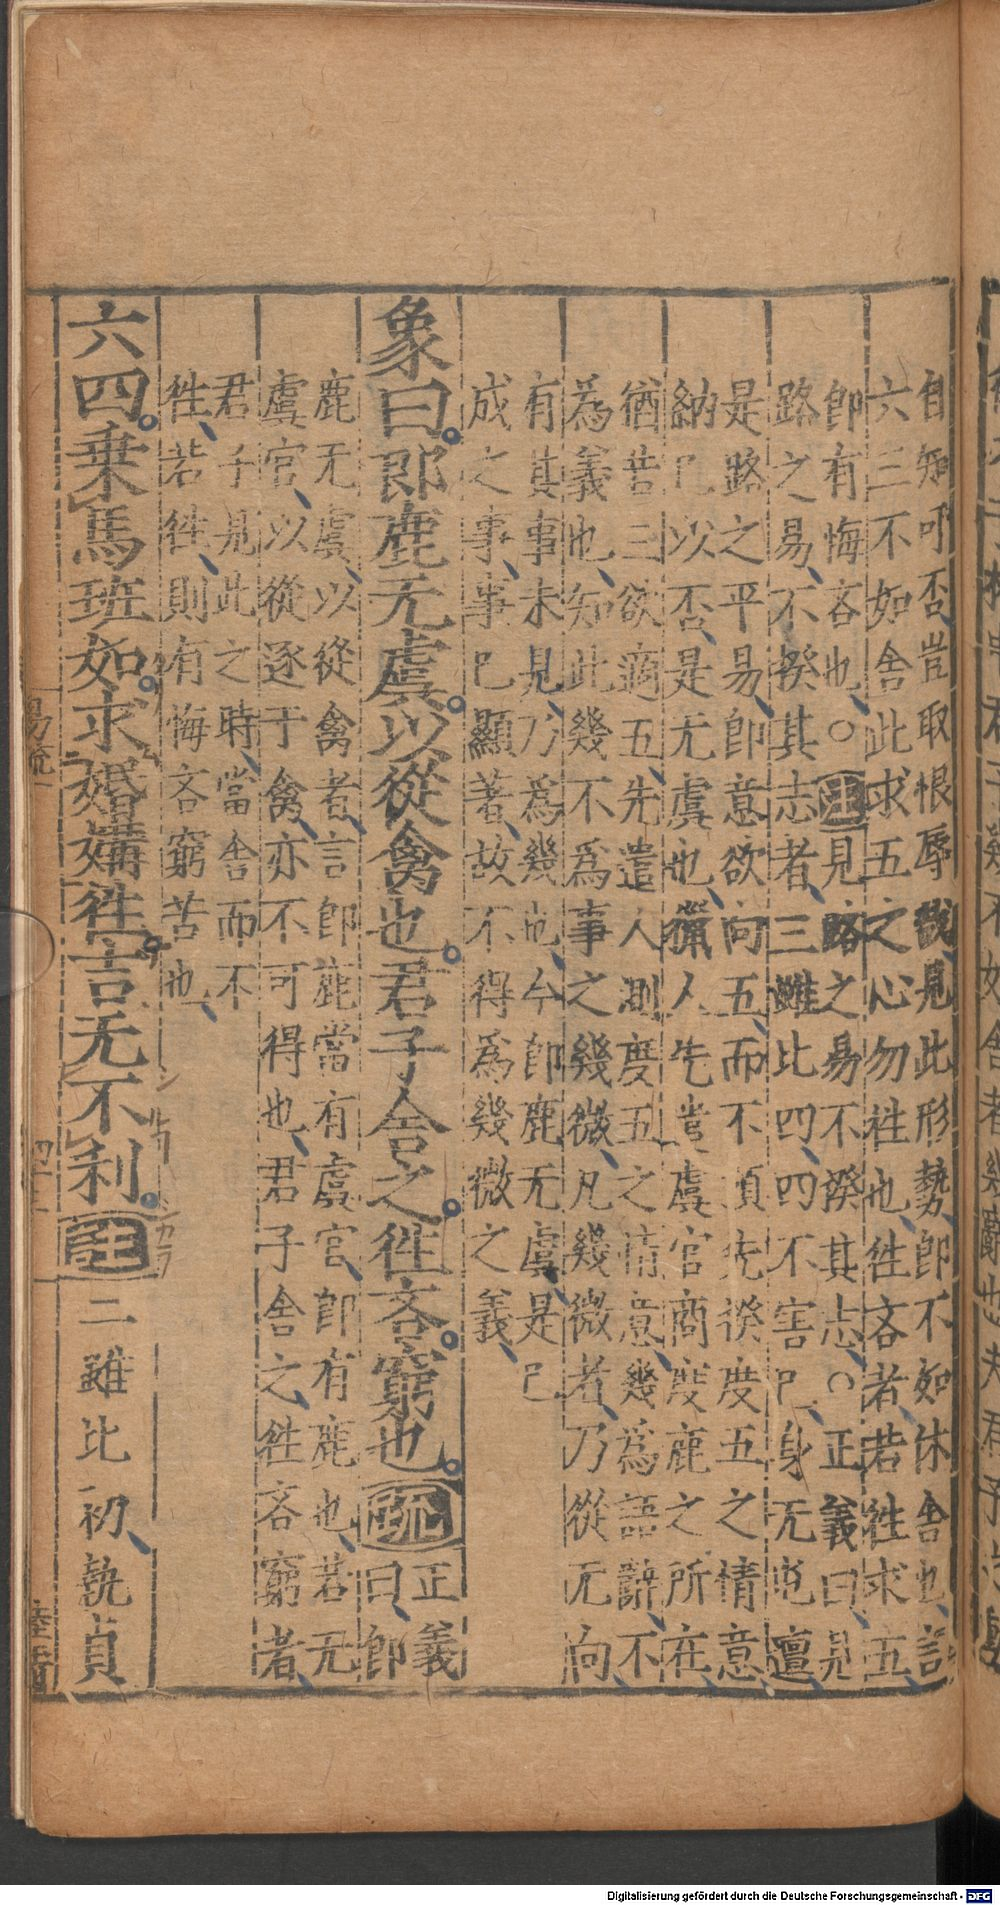 自知可否豈取恨辱哉見此形勢即不如休舍也言
六三不如舍此求五之心勿往也往吝者若往求五
即有悔吝也○注見路之易不揆其志○正義曰見
路之易不揆其志者三雖比四四不害已身无屯邅
是路之平易即意欲向五而不預先揆度五之情意
納已以否是无虞也獵人先遣虞官商度鹿之所在
猶若三欲適五先遣人測度五之情意幾為語辭不
為義也知此幾不為事之幾微凡幾微者乃從无向
有其事未見乃為幾也今即鹿无虞是已
成之事事已顯著故不得為幾微之義
象曰即鹿无虞以從禽也君子舍之往吝窮也疏正義
曰即
鹿无虞以從禽者言即鹿當有虞官即有鹿也若无
虞官以從逐于禽亦不可得也君子舍之往吝窮者
君子見此之時當舍而不
往若往則有悔吝窮苦也
六四乗馬班如求婚媾往吉无不利注二雖比初執貞
易疏
Digitalisierung gefördert durch die Deutsche Forschungsgemeinschaft - DFG